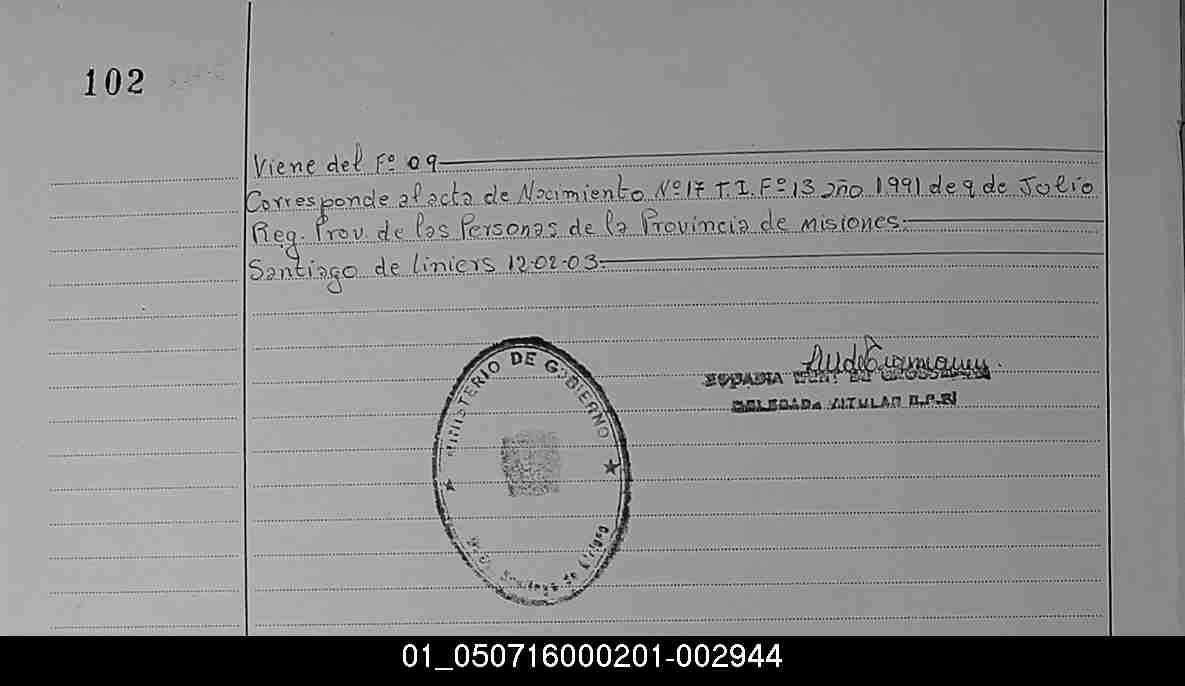 102
Viene del Fº 09
Corresponde al acta de Nacimiento Nº 17 T I. Fº 13 año 1991 de 9 de Julio
Reg. Prov. de las Personas de la Provincia de Misiones.
Santiago de Liniers 12-02-03.
MINISTERIO DE GOBIERNO
DELEGADA TITULAR
01_050716000201-002944